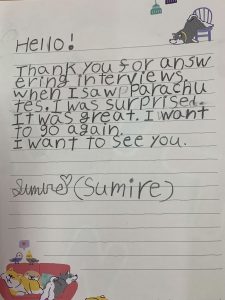 Hello!
Thank you for answ
ering interviews.
when I saw parachu
tes. I was surprised.
It was great. I want
to go again.
I want to see you.
Sumire (Sumire)